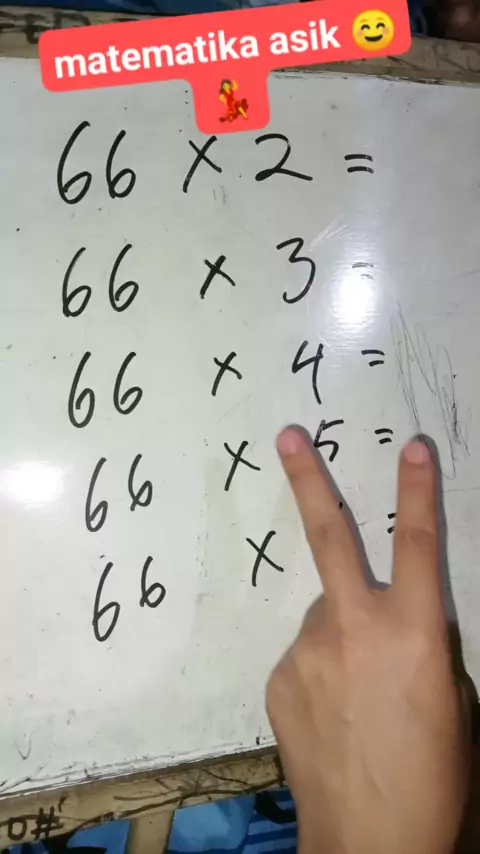 matematika asik ☺️
💃
66 × 2 =
66 × 3 =
66 × 4 =
66 × 5 =
66 × =
0#